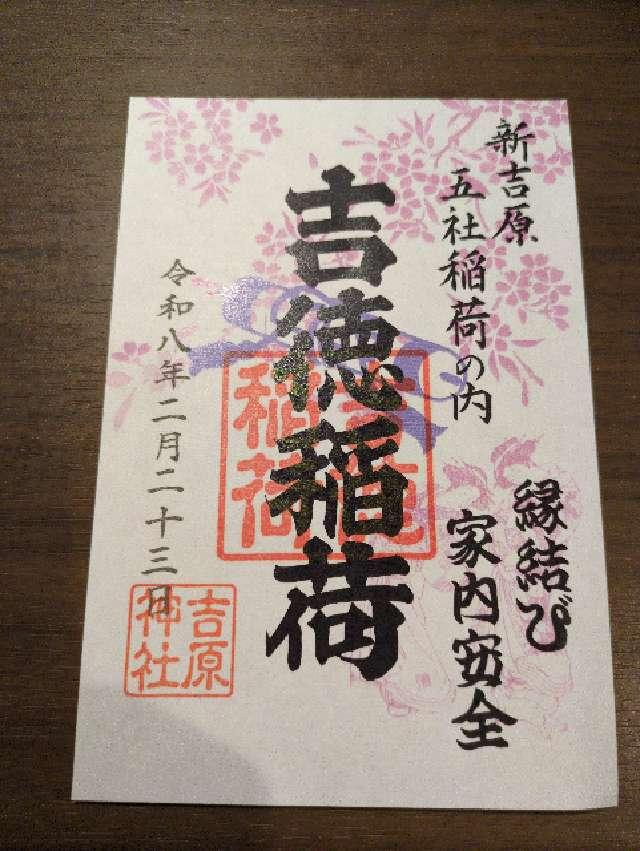 新吉原
五社稲荷の内
縁結び
家内安全
吉徳稲荷
吉徳稲荷
令和八年二月二十三日
吉原神社